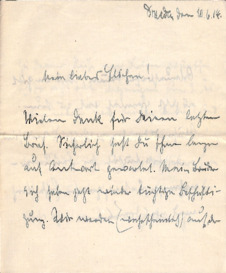 Dresden den 10.6.14.
Mein liebes Elschen!
Vielen Dank für Deinen letzten
Brief. Sicherlich hast Du schon lange
auf Antwort gewartet. Mein
ich haben jetzt wieder tüchtige Beschäfti-
gung. Wir werden (wahrscheinlich) auf